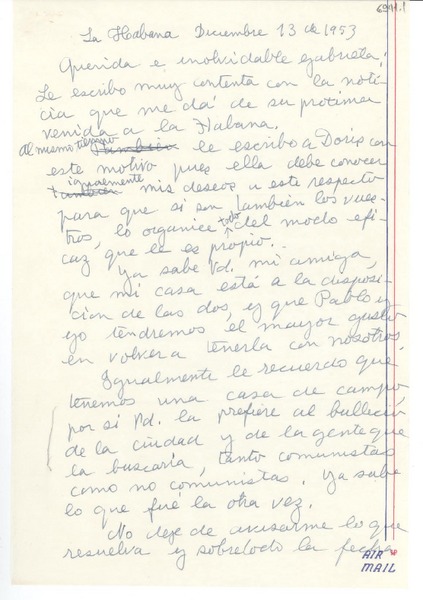 6041.1
La Habana Diciembre 13 de 1953
Querida e inolvidable Gabriela:
Le escribo muy contenta con la noti-
cia que me dá de su proxima
venida a la Habana.
Al mismo tiempo le escribo a Doris con
este motivo pues ella debe conocer
igualmente mis deseos a este respecto
para que si son también los vues-
tros, lo organice todo del modo efi-
caz que le es propio.
Ya sabe Vd. mi amiga,
que mi casa está a la disposi-
cion de las dos, y que Pablo y
yo tendremos el mayor gusto
en volver a tenerla con nosotros.
Igualmente le recuerdo que
tenemos una casa de campo
por si Vd. la prefiere al bullicio
de la ciudad y de la gente que
la buscaría, tanto comunistas
como no comunistas. Ya sabe
lo que fué la otra vez.
No deje de avisarme lo que
resuelva y sobretodo la fecha
AIR
MAIL